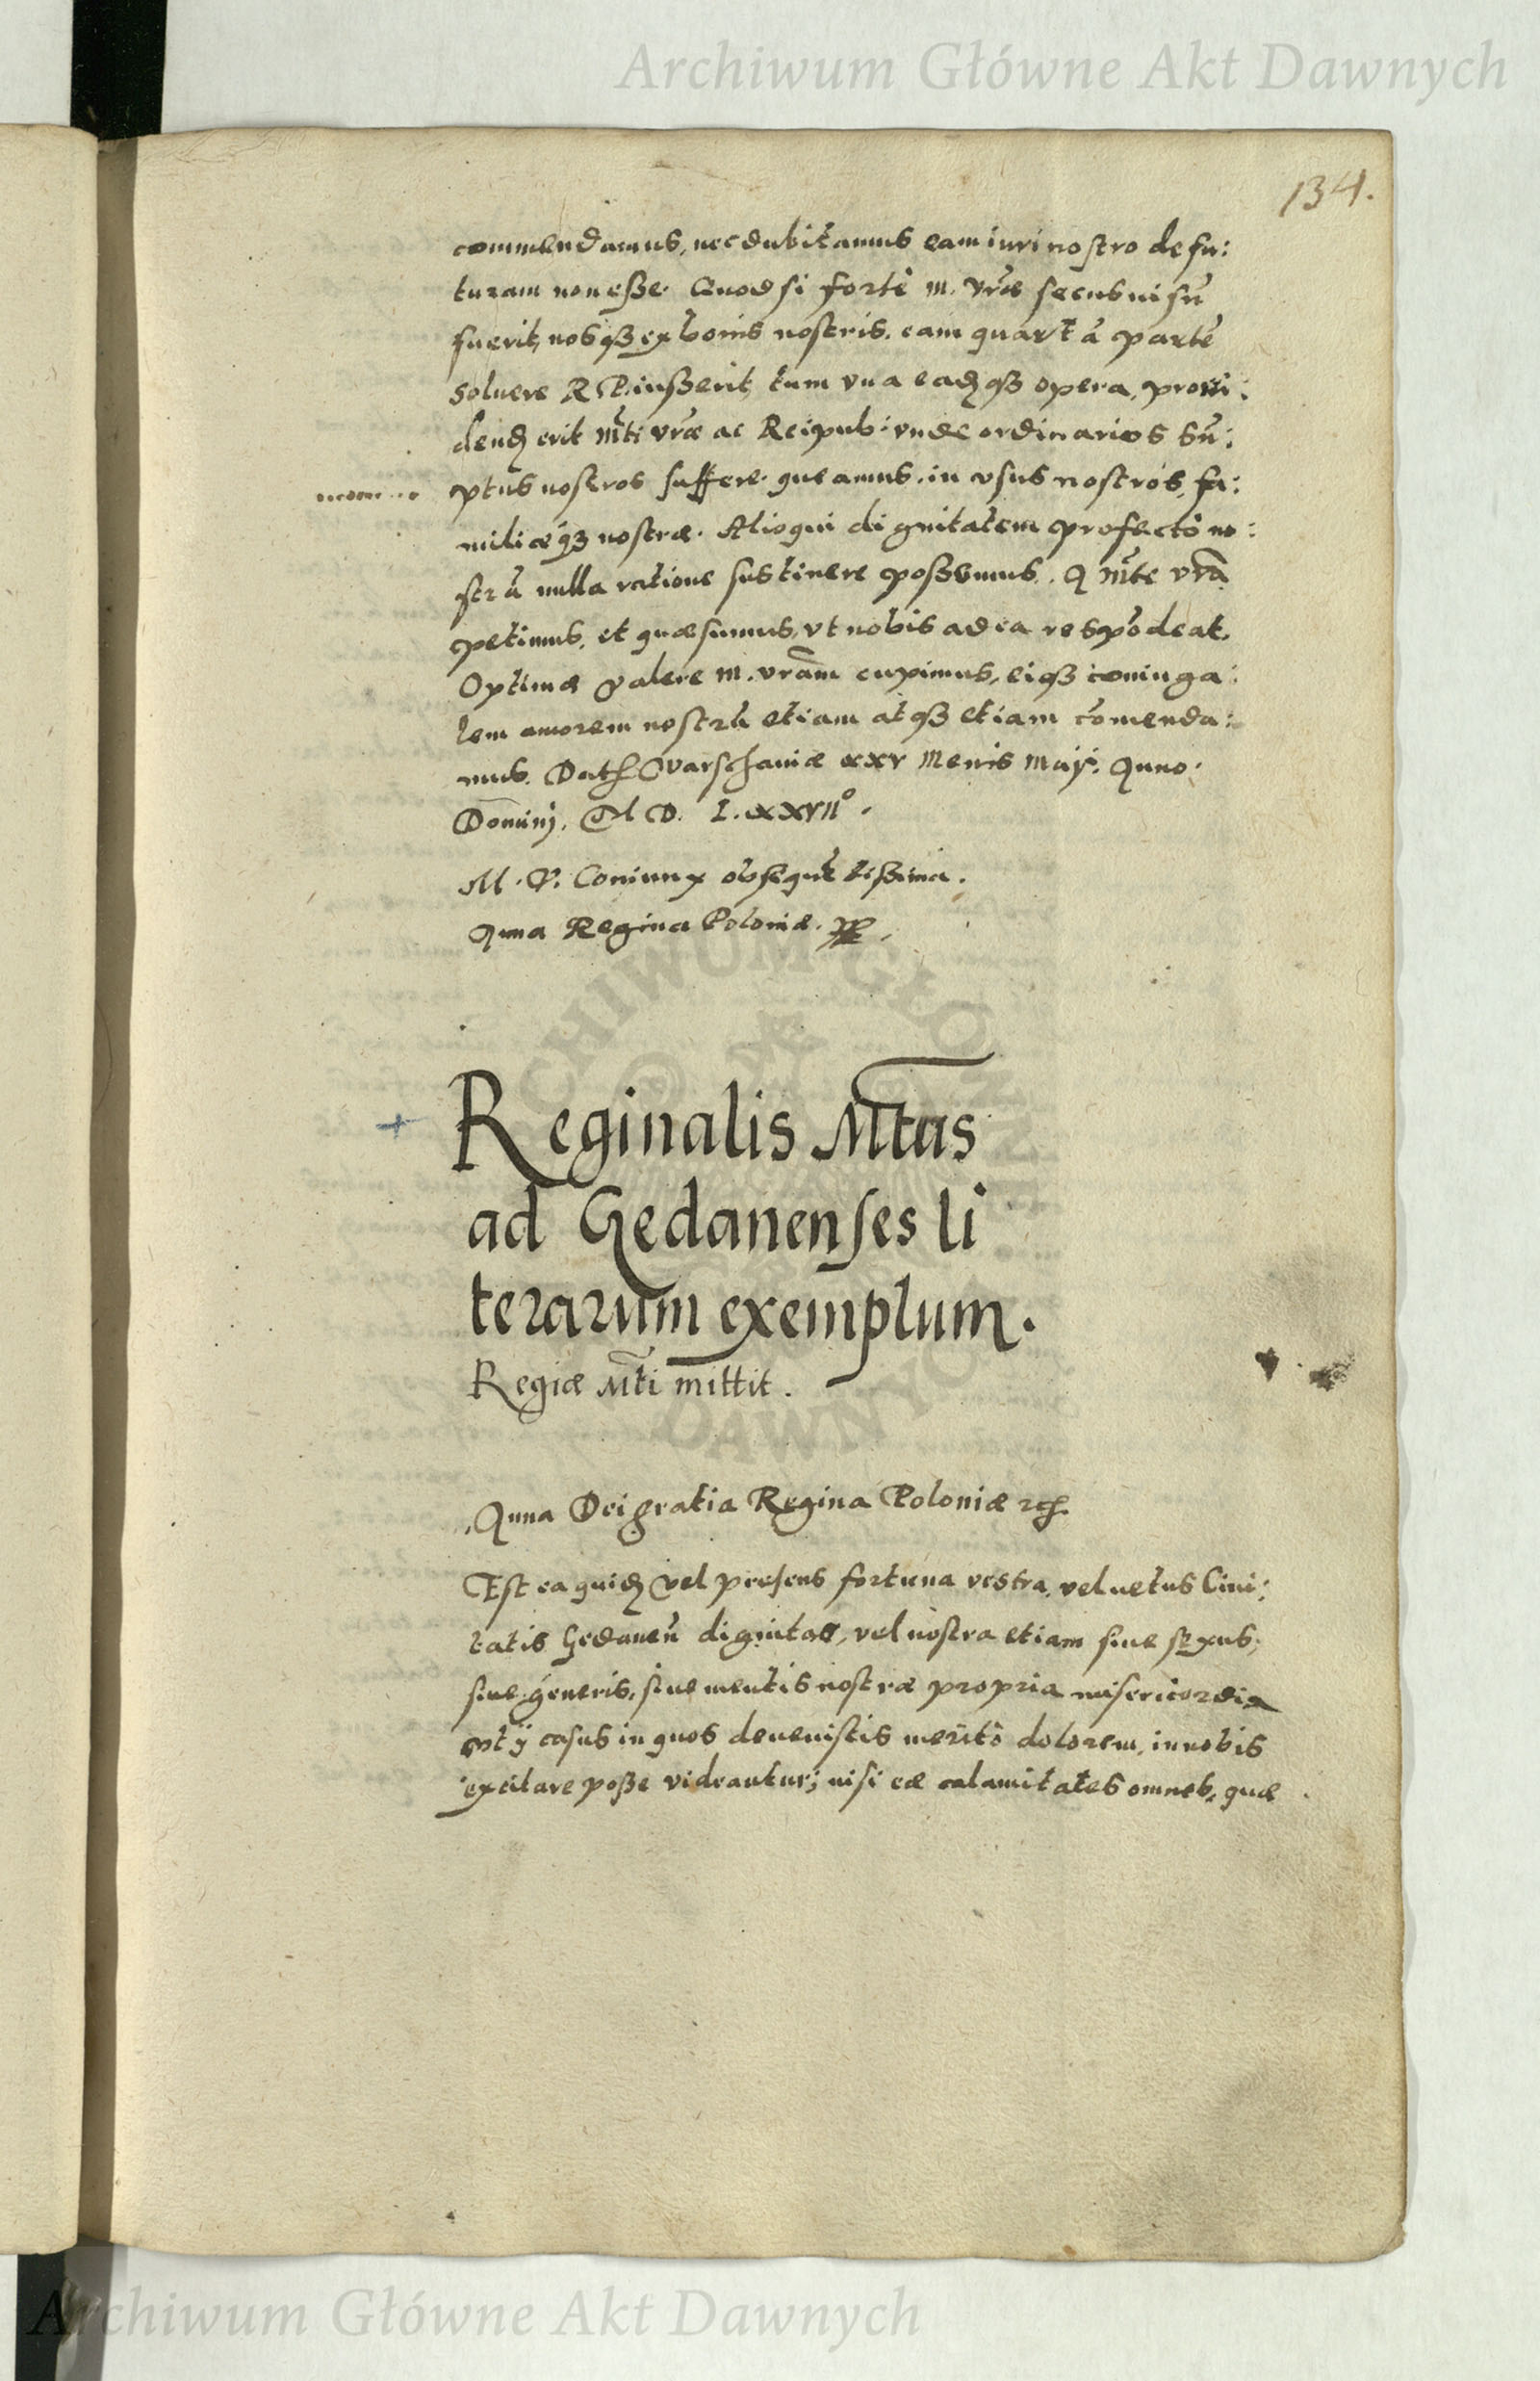 Archiwum Główne Akt Dawnych
134.
commendamus, nec dubitamus eam iuri nostro defu:
turam non eße. Quod si fortè m. vr̃æ secus uisũ
fuerit, nosq́ꝫ ex bonis nostris, eam quartã partẽ
soluere R P. iußerit, tum vna eadẽq́ꝫ opera, proui:
dendũ erit M̃ti vr̃æ ac Reipub: vnde ordinarios sũ:
ptus nostros suffere queamus, in vsus nostros, fa:
miliæq́ꝫ nostræ. Alioqui dignitatem profectò no:
strã nulla ratione sustinere poßumus. A M̃te vr̃a
petimus, et quæsumus, vt nobis ad ea respõdeat.
Optimæ valere m. vrãm cupimus, eiq́ꝫ coniuga:
lem amorem nostrũ etiam atq́ꝫ etiam cõmenda:
mus. Dat. Varschauiæ xxv Mensis Maij. Anno
Domini, M D. L.xxvii°.
M. V. Coniunx obsequẽtißima.
Anna Regina Poloniæ.
Reginalis M̃tas
ad Gedanenses li
terarum exemplum.
Regiæ M̃ti mittit.
Anna Dei gratia Regina Poloniæ etc.
Est ea quidẽ vel presens fortuna vestra, vel uetus Ciui:
tatis Gedaneñ dignitas, vel nostra etiam siue sexus,
siue generis, siue mentis nostræ propria misericordia
vt ij casus in quos deuenistis meritò dolorem, in nobis
excitare poße videantur; nisi eæ calamitates omnes, quæ
ARCHIWUM GŁÓWNE
DAWNYCH
Archiwum Główne Akt Dawnych